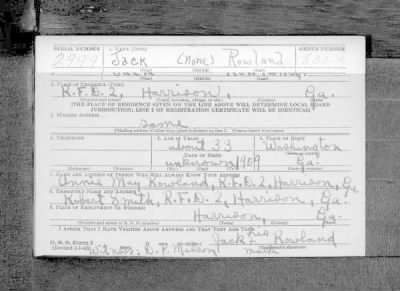 SERIAL NUMBER 1. NAME (Print) ORDER NUMBER
2999 Jack (None) Rowland
(First) (Middle) (Last)
2. PLACE OF RESIDENCE (Print)
R.F.D. 2, Harrison, Ga.
(Number and street) (Town, township, village, or city) (County) (State)
(THE PLACE OF RESIDENCE GIVEN ON THE LINE ABOVE WILL DETERMINE LOCAL BOARD
JURISDICTION; LINE 2 OF REGISTRATION CERTIFICATE WILL BE IDENTICAL)
3. MAILING ADDRESS
same
(Mailing address if other than place indicated on line 2. If same insert word same)
4. TELEPHONE 5. AGE IN YEARS 6. PLACE OF BIRTH
about 33 Washington
DATE OF BIRTH (Town or county)
unknown 1909 Ga.
(Exchange) (Number) (Mo.) (Day) (Yr.) (State or country)
7. NAME AND ADDRESS OF PERSON WHO WILL ALWAYS KNOW YOUR ADDRESS
Annie May Rowland, R.F.D. 2, Harrison, Ga
8. EMPLOYER'S NAME AND ADDRESS
Robert Smith, R.F.D. 2, Harrison, Ga.
9. PLACE OF EMPLOYMENT OR BUSINESS
Harrison, Ga.
(Number and street or R. F. D. number) (Town) (County) (State)
I AFFIRM THAT I HAVE VERIFIED ABOVE ANSWERS AND THAT THEY ARE TRUE.
D. S. S. Form 1 Jack his Rowland
Witness: mark